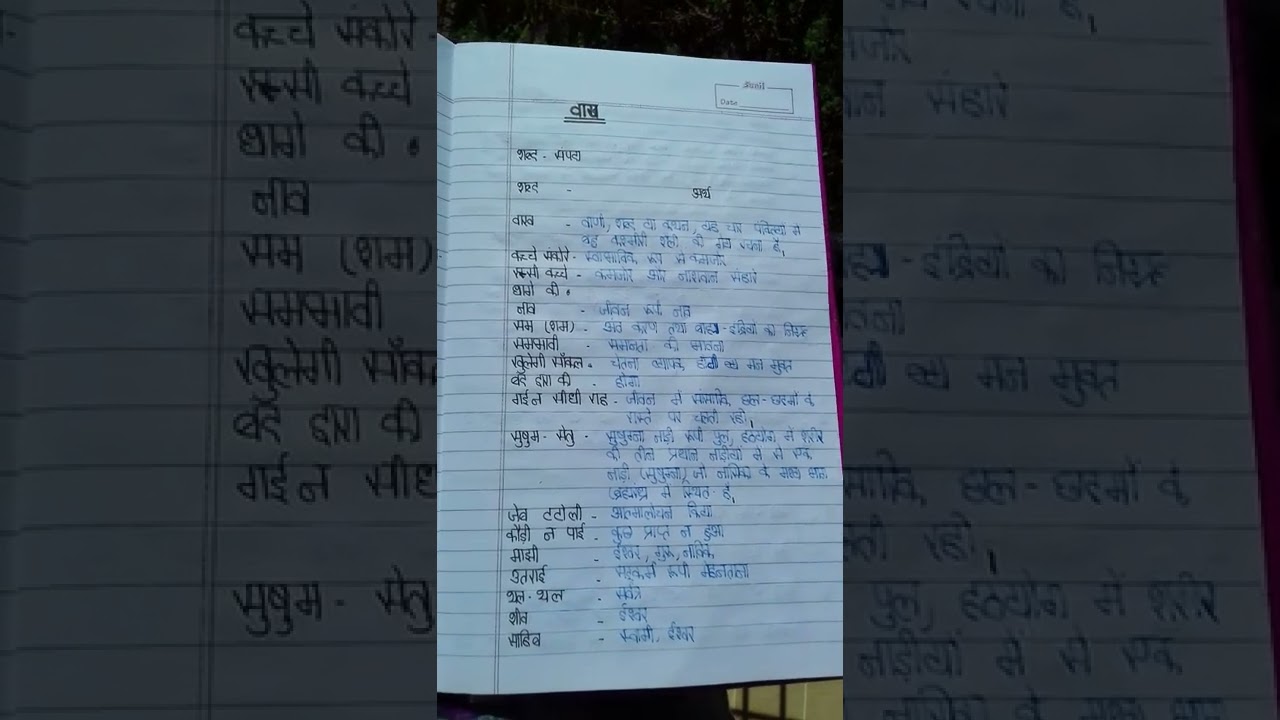 Date
वाख
शब्द - संपदा
शब्द - अर्थ
वाख - वाणी, शब्द या कथन, यह चार पंक्तियों में
बद्ध कश्मीरी शैली की गेय रचना है,
कच्चे सकोरे - स्वाभाविक रूप से कमजोर
रस्सी कच्चे - कमजोर और नाशवान सहारे
धागे की .
नाव - जीवन रूपी नाव
सम (शम) - अंत करण तथा बाह्य-इंद्रियों का निग्रह
समभावी - समानता की भावना
खुलेगी साँकल . चेतना व्यापक होगी मन मुक्त
बंद द्वार की - होगा
गई न सीधी राह - जीवन में सांसारिक छल-छद्मों के
रास्ते पर चलती रही,
सुषुम - सेतु - सुषुम्ना नाड़ी रूपी पुल, हठयोग में शरीर
की तीन प्रधान नाड़ीयों में से एक
नाड़ी (सुषुम्ना) जो नासिका के मध्य भाग
में स्थित है,
जेब टटोली - आत्मालोचन किया
कौड़ी न पाई - कुछ प्राप्त न हुआ
माझी - ईश्वर, गुरू, नाविक
उतराई - सद्कर्म रूपी मेहनताना
थल-थल - सर्वत्र
शीव - ईश्वर
साहिब - स्वामी, ईश्वर